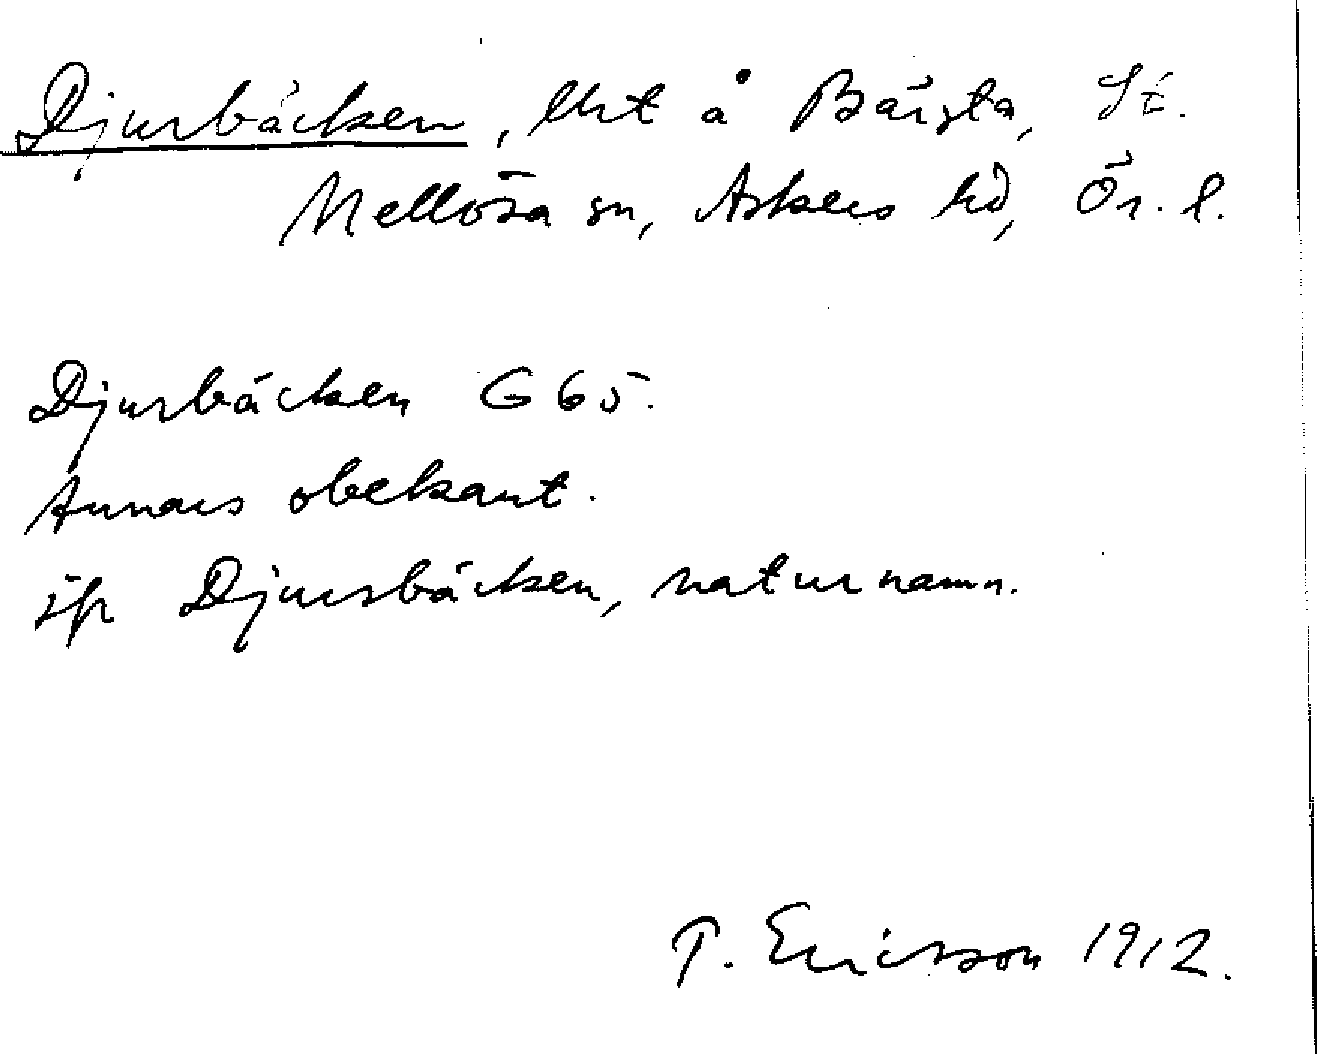 Djurbäcken, lht å Bärsta, St.
Mellösa sn, Askers hd, Ör. l.
Djurbäcken G 65.
Annars obekant.
jfr Djursbäcken, naturnamn.
T. Ericsson 1912.